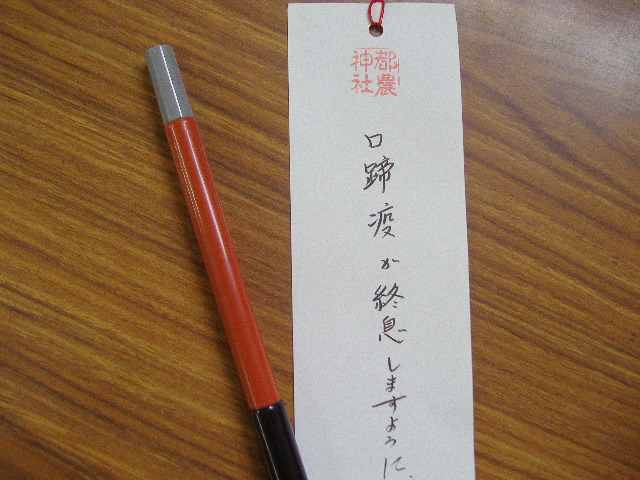 都農
神社
口蹄疫が終息しますように.